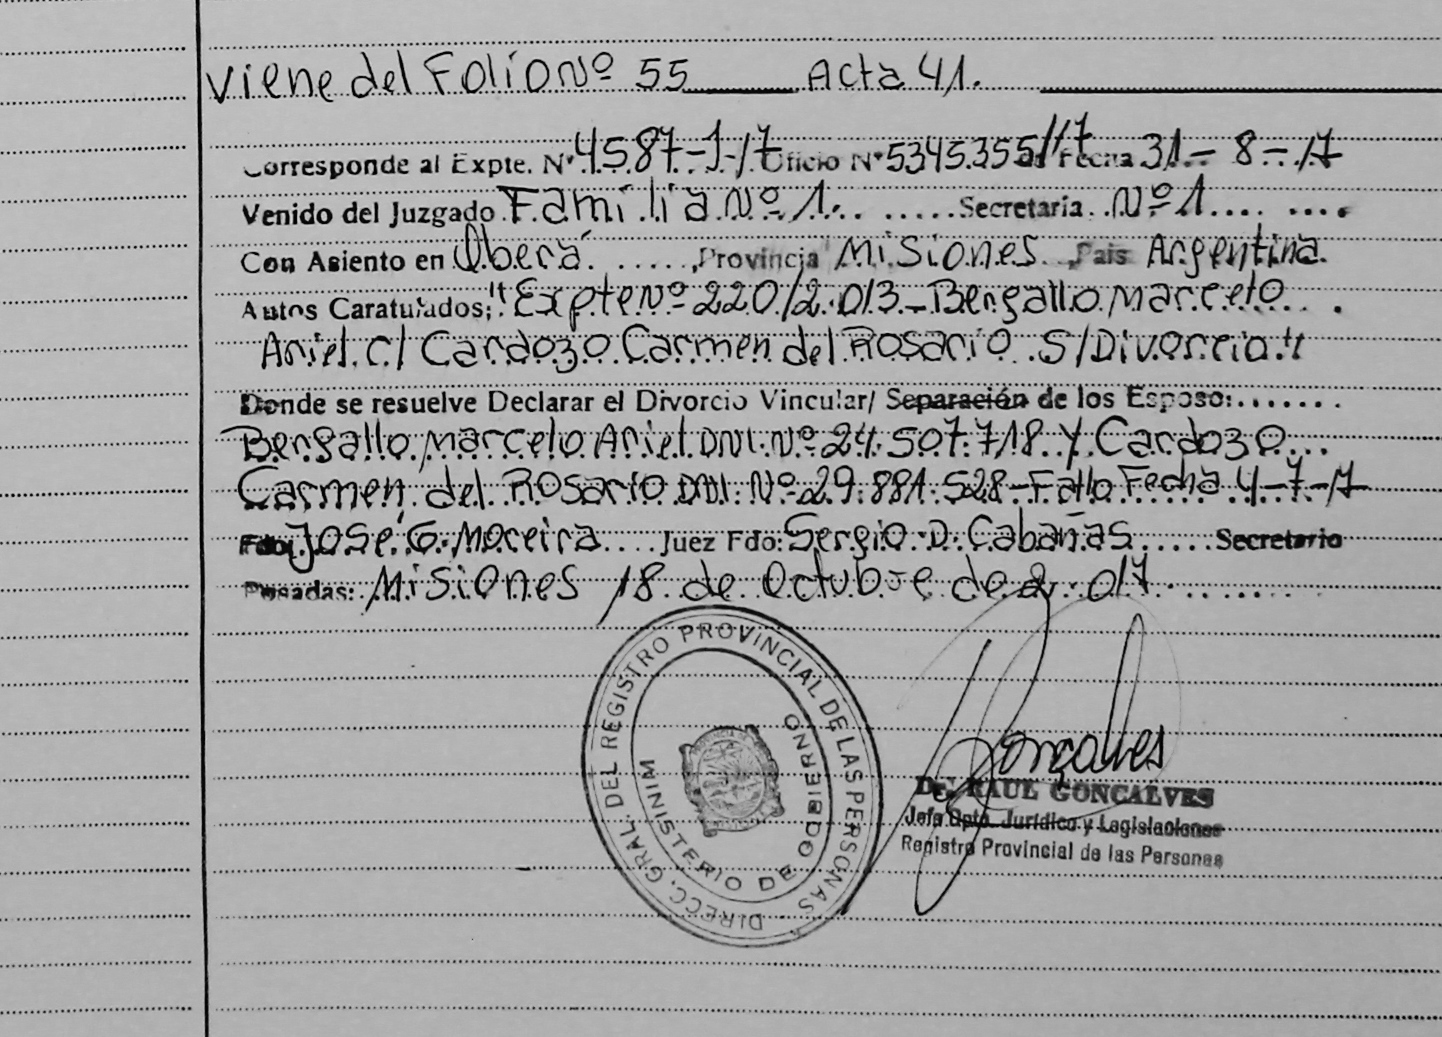 Viene del Folio Nº 55 Acta 41.
Corresponde al Expte. Nº 4587-1-17 Oficio Nº 5345.355/17 de Fecha 31-8-17
Venido del Juzgado Familia Nº 1. Secretaria Nº 1
Con Asiento en Oberá, Provincia Misiones País Argentina.
Autos Caratulados; "Expte Nº 220/2.013-Bergallo Marcelo
Ariel c/ Cardozo Carmen del Rosario S/Divorcio"
Donde se resuelve Declarar el Divorcio Vincular/ Separación de los Esposo:
Bergallo Marcelo Ariel DNI.Nº 24.507.718 y Cardozo
Carmen del Rosario DNI.Nº 29.881.528-Fallo Fecha 4-7-17
Fdo; José G. Moreira Juez Fdo: Sergio D. Cabañas Secretario
Posadas: Misiones 18 de Octubre de 2.017.
DIRECC. GRAL. DEL REGISTRO PROVINCIAL DE LAS PERSONAS
MINISTERIO DE GOBIERNO
Gonçalves
Dr. RAUL GONCALVES
Jefe Dpto. Jurídico y Legislaciones
Registro Provincial de las Personas